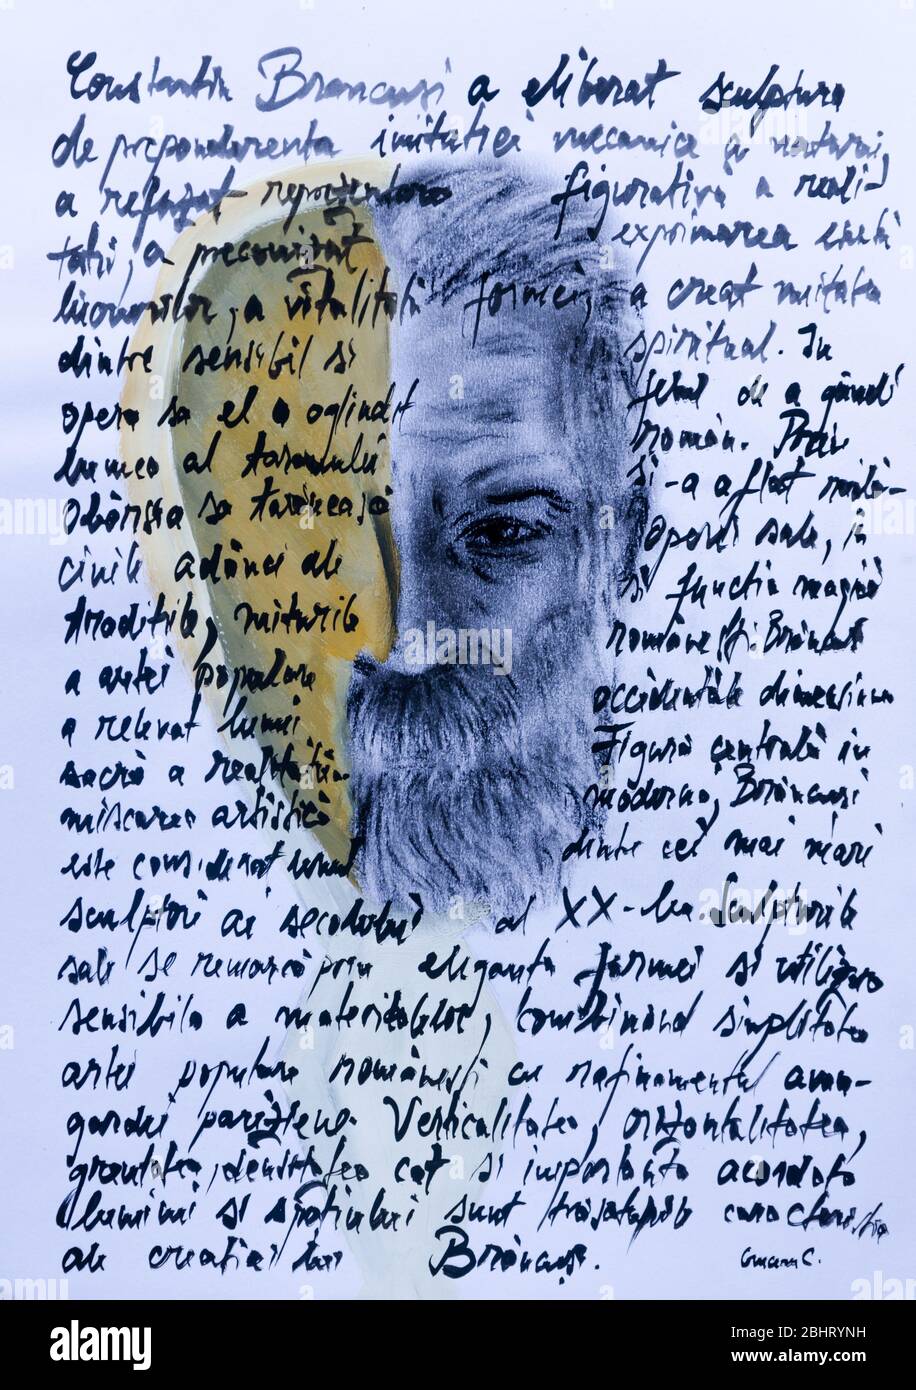 Constantin Brancuși a eliberat sculptura
de preponderența imitației mecanice a naturii,
a refuzat reprezentarea figurativă a reali-
tății, a preconizat exprimarea
lucrurilor, a vitalității formei, a creat unitatea
dintre sensibil si spiritual. In
opera sa el a oglindit felul de a gândi
lumea al taranului român. Prin
obârșia sa tarănească si-a aflat rădă-
cinile adânci ale operei sale, in
traditiile, miturile si functia magică
a artei populare românești. Brâncusi
a relevat lumii occidentale dimensiunea
sacră a realitatii. Figură centrală in
miscarea artistică modernă, Brâncusi
este considerat unul dintre cei mai mari
sculptori ai secolului al XX-lea. Sculpturile
sale se remarcă prin eleganta formei si utilizarea
sensibila a materialelor, combinand simplitatea
artei populare românești cu rafinamentul avan-
gardei pariziene. Verticalitatea, orizontalitatea,
greutatea, densitatea cat si importanta acordată
luminii si spatiului sunt trăsăturile caracteristice
ale creatiei lui Brâncuși.
alamy
Image ID: 2BHRYNH
www.alamy.com